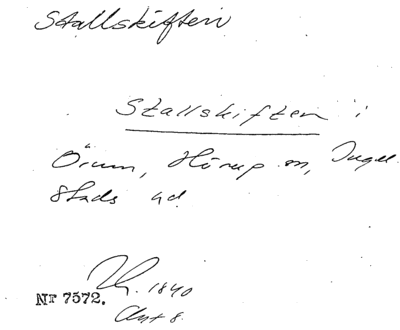 Stallskiften
Stallskiften i
Örum, Hörup sn, Ingel
stads hd.
1840
Nr 7572.
Akt 8.